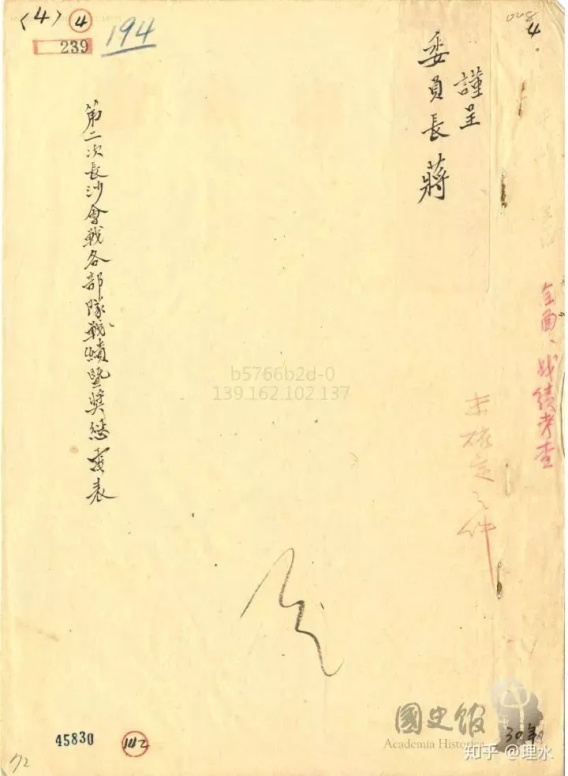 (4) ④
239
194
008
4
謹呈
委員長 蔣
第二次長沙會戰各部隊戰績暨獎懲
表
全面、战績考查
未確定之件
b5766b2d-0
139.162.102.137
國史館
Academia Historica
30年
知乎 @理水
45830
142